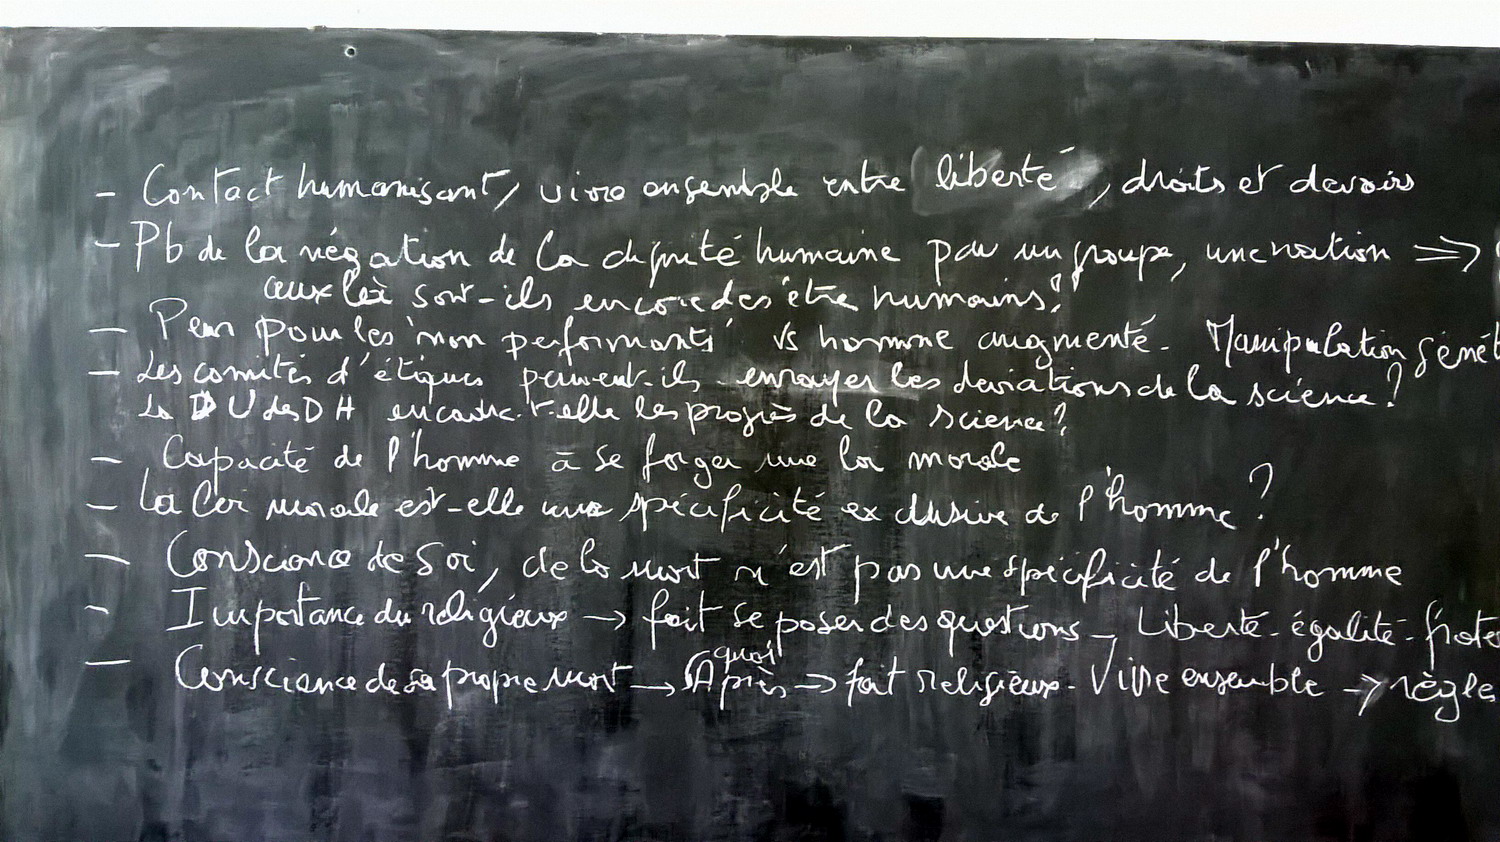 - Contact humanisant, vivre ensemble entre liberté, droits et devoirs
- Pb de la négation de la dignité humaine par un groupe, une nation =>
ceux là sont-ils encore des être humains?
- Peur pour les "non performants" vs homme augmenté. Manipulation génét
- Les comités d'étiques peuvent-ils enrayer les déviations de la science?
La DU des DH encadre-t-elle les progrès de la science?
- Capacité de l'homme à se forger une loi morale
- La loi morale est-elle une spécificité exclusive de l'homme?
- Conscience de soi, de la mort n'est pas une spécificité de l'homme
- Importance du religieux → fait se poser des questions - Liberté - égalité - frater
- Conscience de sa propre mort → Après quoi → fait religieux - Vivre ensemble → règles